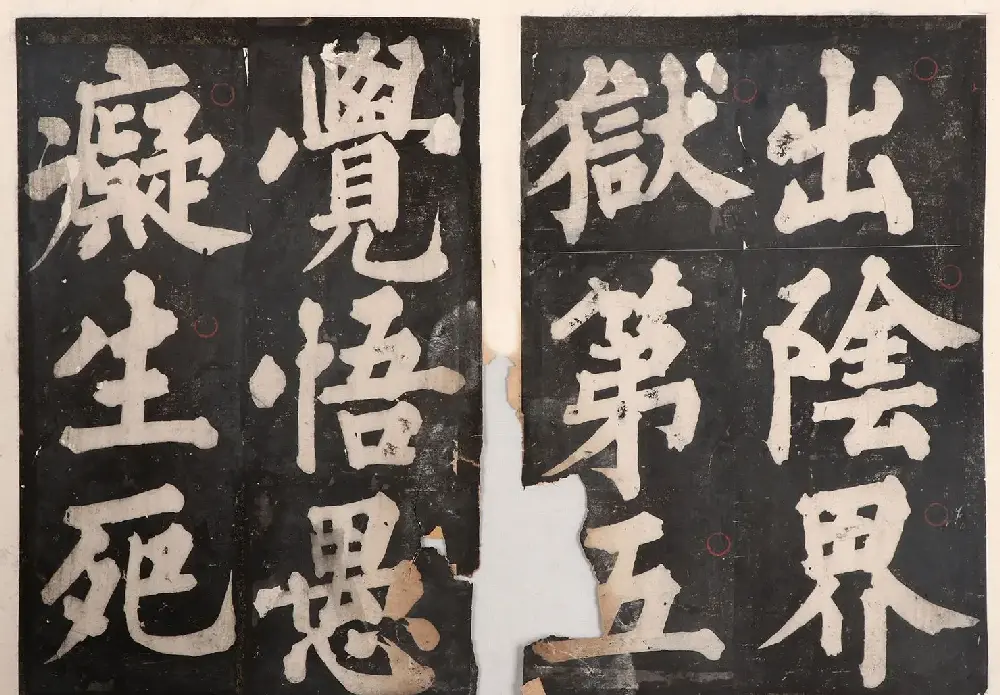 出陰界
獄第五
覺悟愚
癡生死